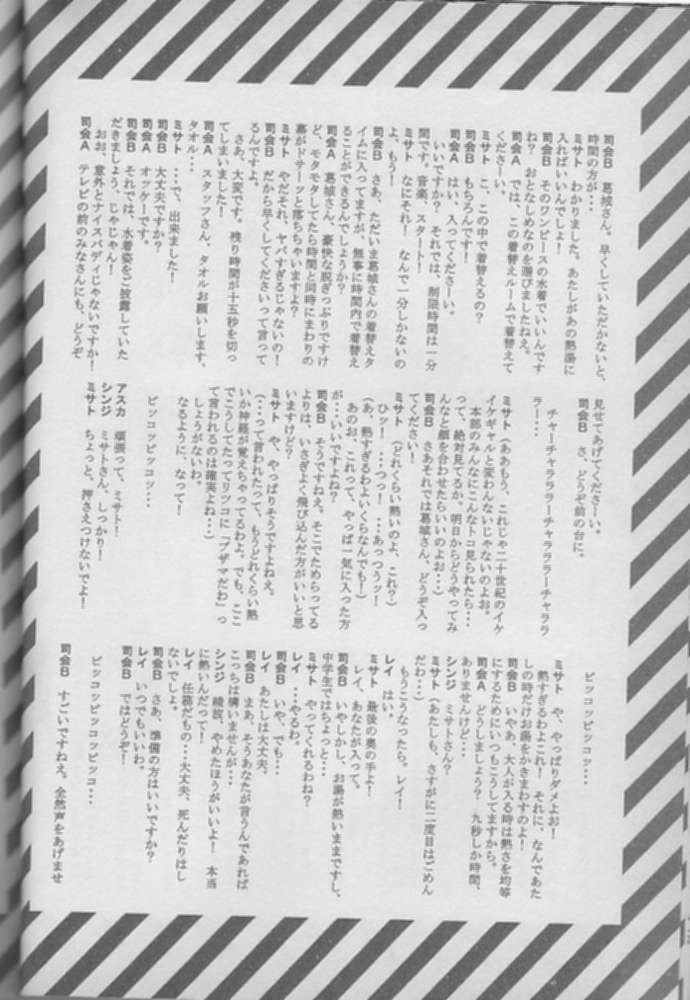 司会B　葛城さん。早くしていただかないと、
時間の方が…
ミサト　わかりました。あたしがあの熱湯に
入ればいいんでしょ！
司会B　そのワンピースの水着でいいんです
ね？　おとなしめなのを選びましたねえ。
司会A　では、この着替えルームで着替えて
くださーい。
ミサト　こ、この中で着替えるの？
司会B　もちろんです！
司会A　はい、入ってください。
いいですか？　それでは、制限時間は一分
間です。音楽、スタート！
ミサト　なにそれ！　なんで一分しかないの
よ、もう！
司会B　さあ、ただいま葛城さんの着替えタ
イムに入ってますが、無事に時間内で着替え
ることができるんでしょうか？
司会A　葛城さん、豪快な脱ぎっぷりですけ
ど、モタモタしてたら時間と同時にまわりの
幕がドサーッと落ちちゃいますよ？
ミサト　やだそれ、ヤバすぎるじゃないの！
司会B　だから早くしてくださいって言って
るんですよ。
さあ、大変です。残り時間が十五秒を切っ
てしまいました！
司会A　スタッフさん、タオルお願いします、
タオル…
ミサト　…で、出来ました！
司会B　大丈夫ですか？
司会A　オッケーです。
司会B　それでは、水着姿をご披露していた
だきましょう、じゃじゃん！
おお、意外とナイスバディじゃないですか！
司会A　テレビの前のみなさんにも、どうぞ
見せてあげてくださーい。
司会B　さ、どうぞ前の台に。
チャーチャラララーチャラララーチャララ
ラー…
ミサト（ああもう、これじゃ二十世紀のイケ
イケギャルと変わんないじゃないのよお。
本部のみんなにこんなトコ見られたら…
って、絶対見てるか、明日からどうやってみ
んなと顔を合わせたらいいのよお…）
司会B　さあそれでは葛城さん、どうぞ入っ
てください！
ミサト　（どれくらい熱いのよ、これ？）
ひッ！　…つっ！　…あっつうッ！
（あ、熱すぎるわよいくらなんでも！）
あのお、これって、やっぱ一気に入った方
が…いいですよね？
司会B　そうですねえ。そこでためらってる
よりは、いさぎよく飛び込んだ方がいいと思
いますけど？
ミサト　や、やっぱりそうですよねえ。
（…って言われたって、もうどれくらい熱
いか神経が覚えちゃってるわよ。でも、ここ
でこうしてたってリツコに「ブザマだわ」っ
て言われるのは確実よね…）
しょうがないわ。
なるように、なって！
ピッコッピッコッ…
アスカ　頑張って、ミサト！
シンジ　ミサトさん、しっかり！
ミサト　ちょっと、押さえつけないでよ！
ピッコッピッコッ…
ミサト　や、やっぱりダメよお！
熱すぎるわよこれ！　それに、なんであた
しの時だけお湯をかきまわすのよ！
司会B　いやあ、大人が入る時は熱さを均等
にするためにいつもこうしてますから。
司会A　どうしましょう？　九秒しか時間、
ありませんけど…
シンジ　ミサトさん？
ミサト（あたしも、さすがに二度目はごめん
だわ…）
もうこうなったら。レイ！
レイ　はい。
ミサト　最後の奥の手よ！
レイ、あなたが入って。
司会B　いやしかし、お湯が熱いままですし、
中学生ではちょっと…
ミサト　やってくれるわね？
レイ　…やるわ。
司会B　いや、でも…
レイ　あたしは大丈夫。
司会B　まあ、そうあなたが言うんであれば
こっちは構いませんが…
シンジ　綾波、やめたほうがいいよ！　本当
に熱いんだって！
レイ　任務だもの…大丈夫、死んだりはし
ないでしょ。
司会B　さあ、準備の方はいいですか？
レイ　いつでもいいわ。
司会B　ではどうぞ！
ピッコッピッコッピッコ…
司会B　すごいですねえ。全然声をあげませ